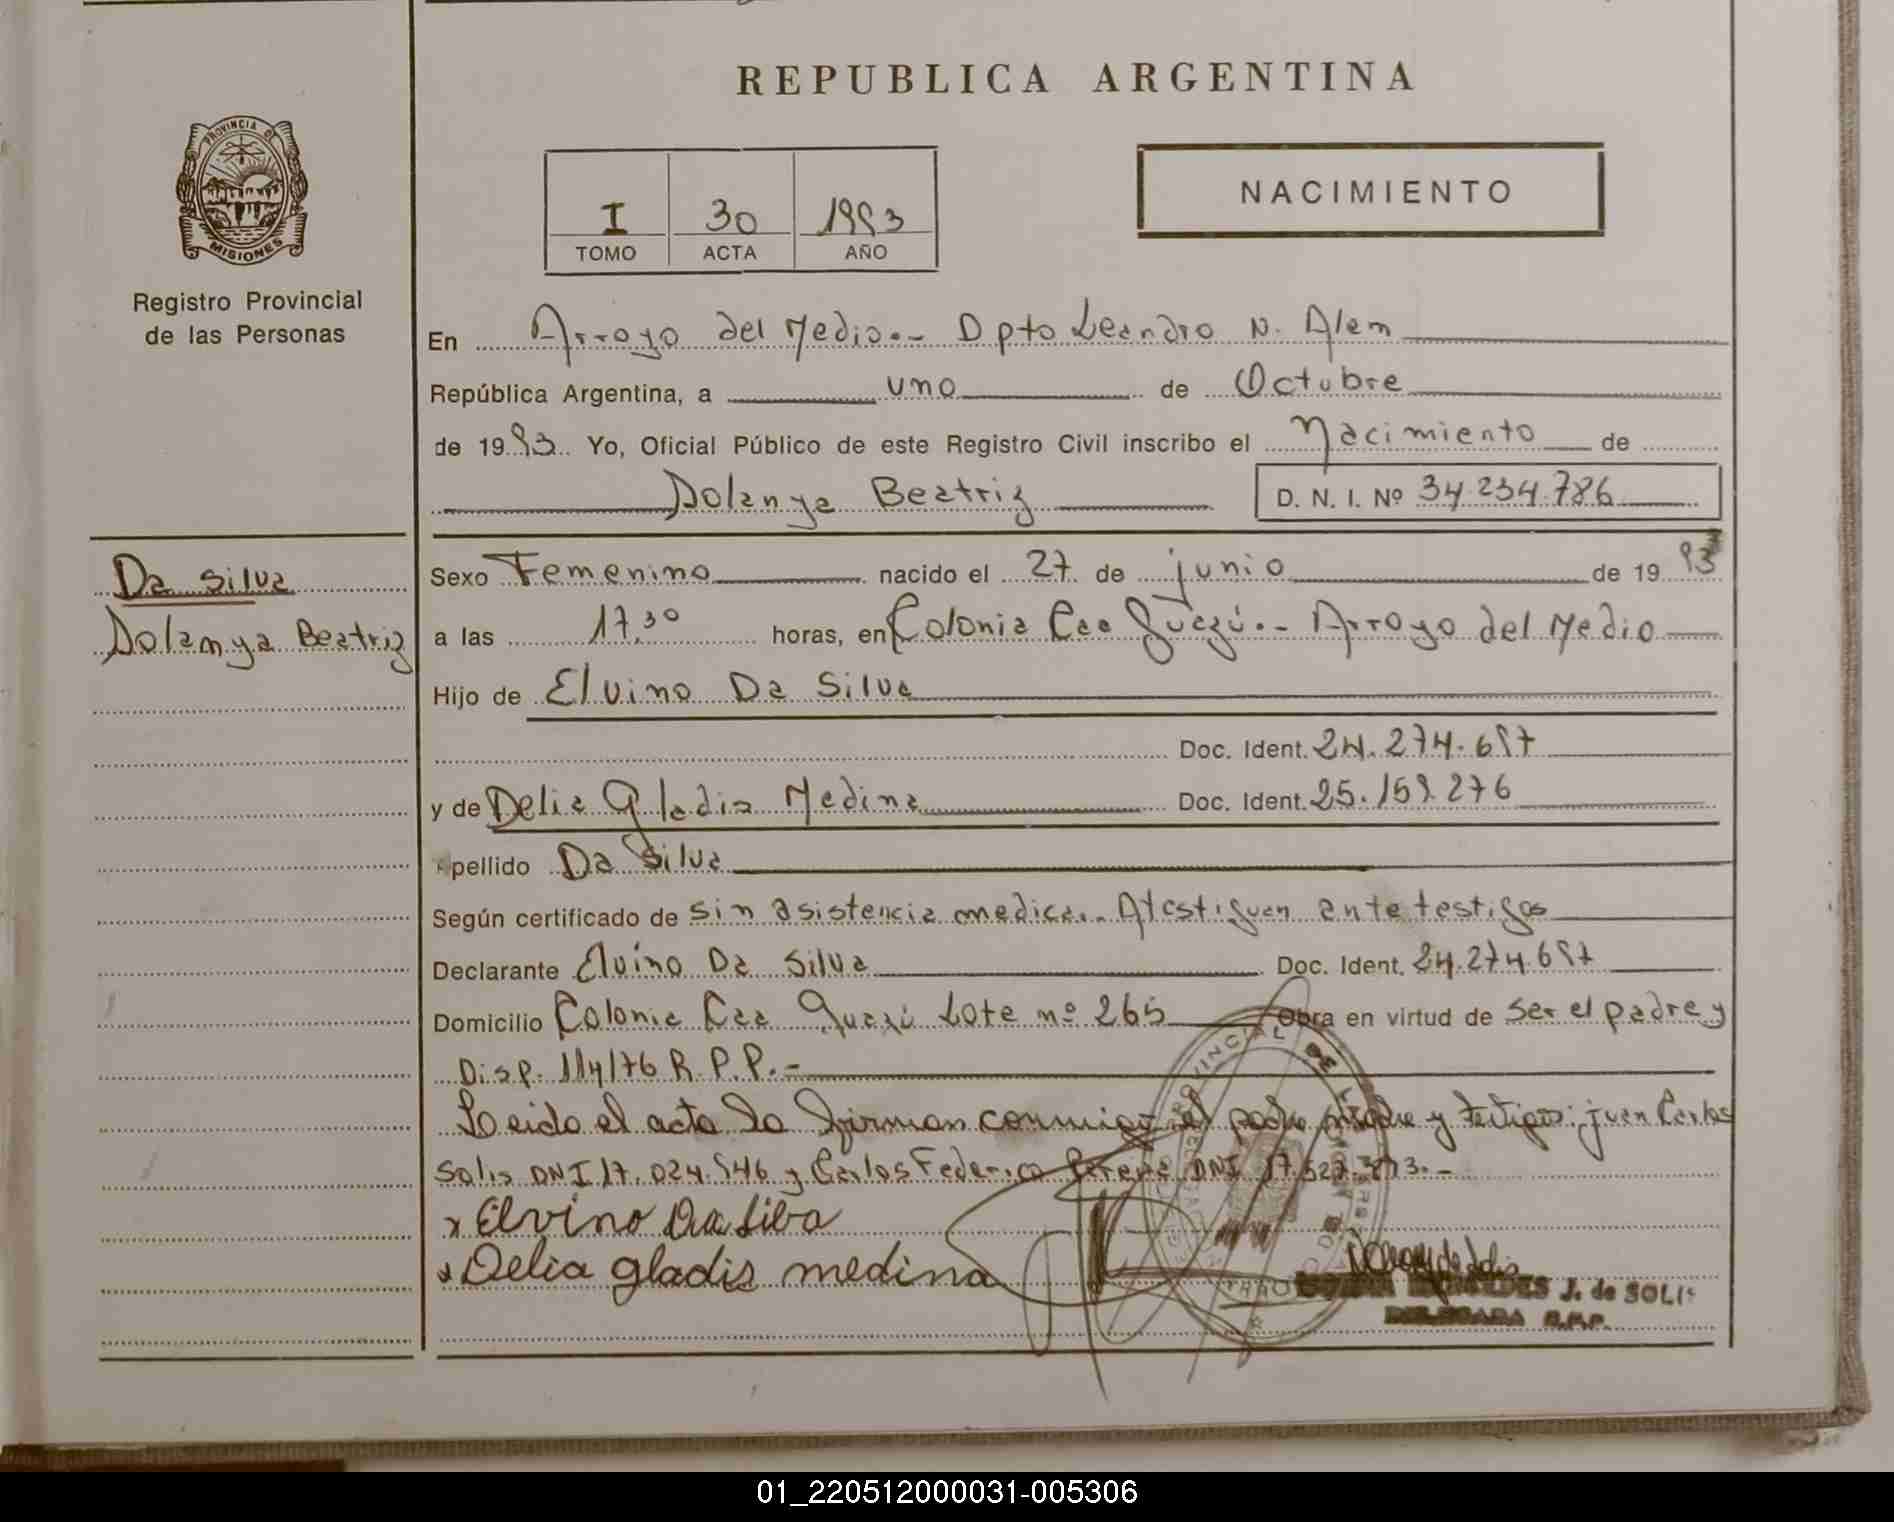 REPUBLICA ARGENTINA
PROVINCIA DE
MISIONES
Registro Provincial
de las Personas
NACIMIENTO
I 30 1993
TOMO ACTA AÑO
En Arroyo del Medio.- Dpto Leandro N. Alem
República Argentina, a uno de Octubre
de 1993. Yo, Oficial Público de este Registro Civil inscribo el Nacimiento de
Dolanya Beatriz D. N. I. Nº 34.234.786
Da Silva
Dolanya Beatriz
Sexo Femenino nacido el 27 de junio de 1993
a las 17.30 horas, en Colonia Caa Guazú.- Arroyo del Medio
Hijo de Elvino Da Silva
Doc. Ident. 24.274.697
y de Delia Gladis Medina Doc. Ident. 25.159.276
pellido Da Silva
Según certificado de sin asistencia medica.- Atestiguan ante testigos
Declarante Elvino Da Silva Doc. Ident. 24.274.697
Domicilio Colonia Caa Guazú Lote nº 265 Obra en virtud de ser el padre y
Disp. 114/76 R.P.P.-
Leida el acta la firman conmigo el padre madre y testigos: juan Carlos
Solis DNI 17.024.946 y Carlos Federico DNI
x Elvino Da Silva
x Delia gladis medina
J. de SOLIS
DELEGADA R.P.P.
01_220512000031-005306